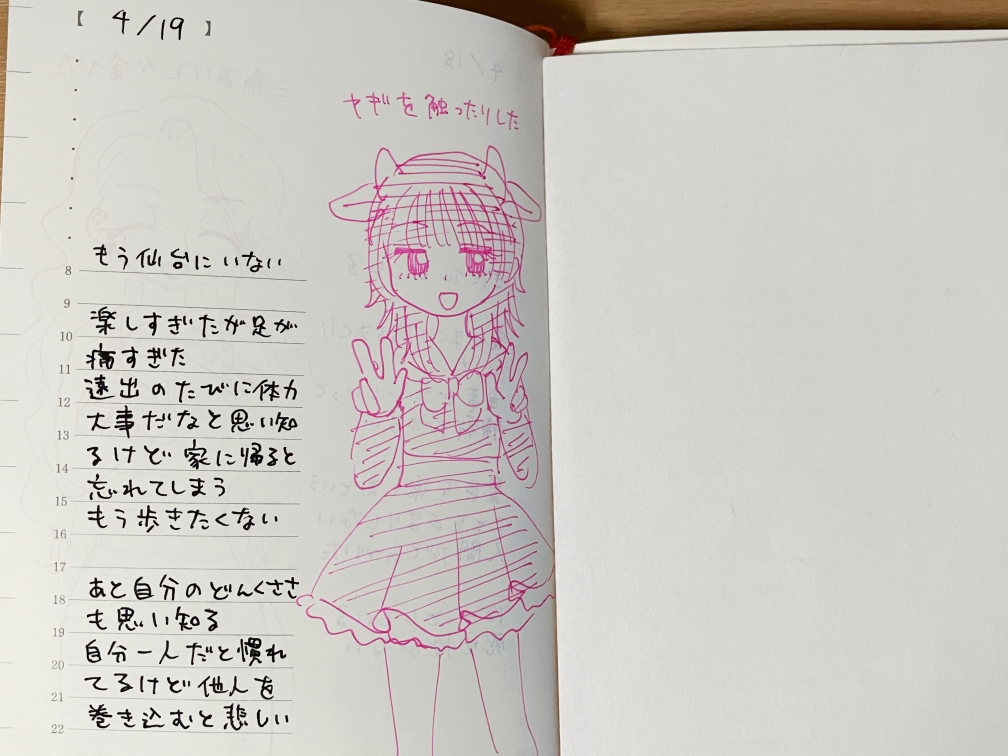 【 4/19 】
ヤギを触ったりした
もう仙台にいない
8
9
楽しすぎたが足が
10
痛すぎた
11
遠出のたびに体力
12
大事だなと思い知
13
るけど家に帰ると
14
忘れてしまう
15
もう歩きたくない
16
17
あと自分のどんくささ
18
も思い知る
19
自分一人だと慣れ
20
てるけど他人を
21
巻き込むと悲しい
22